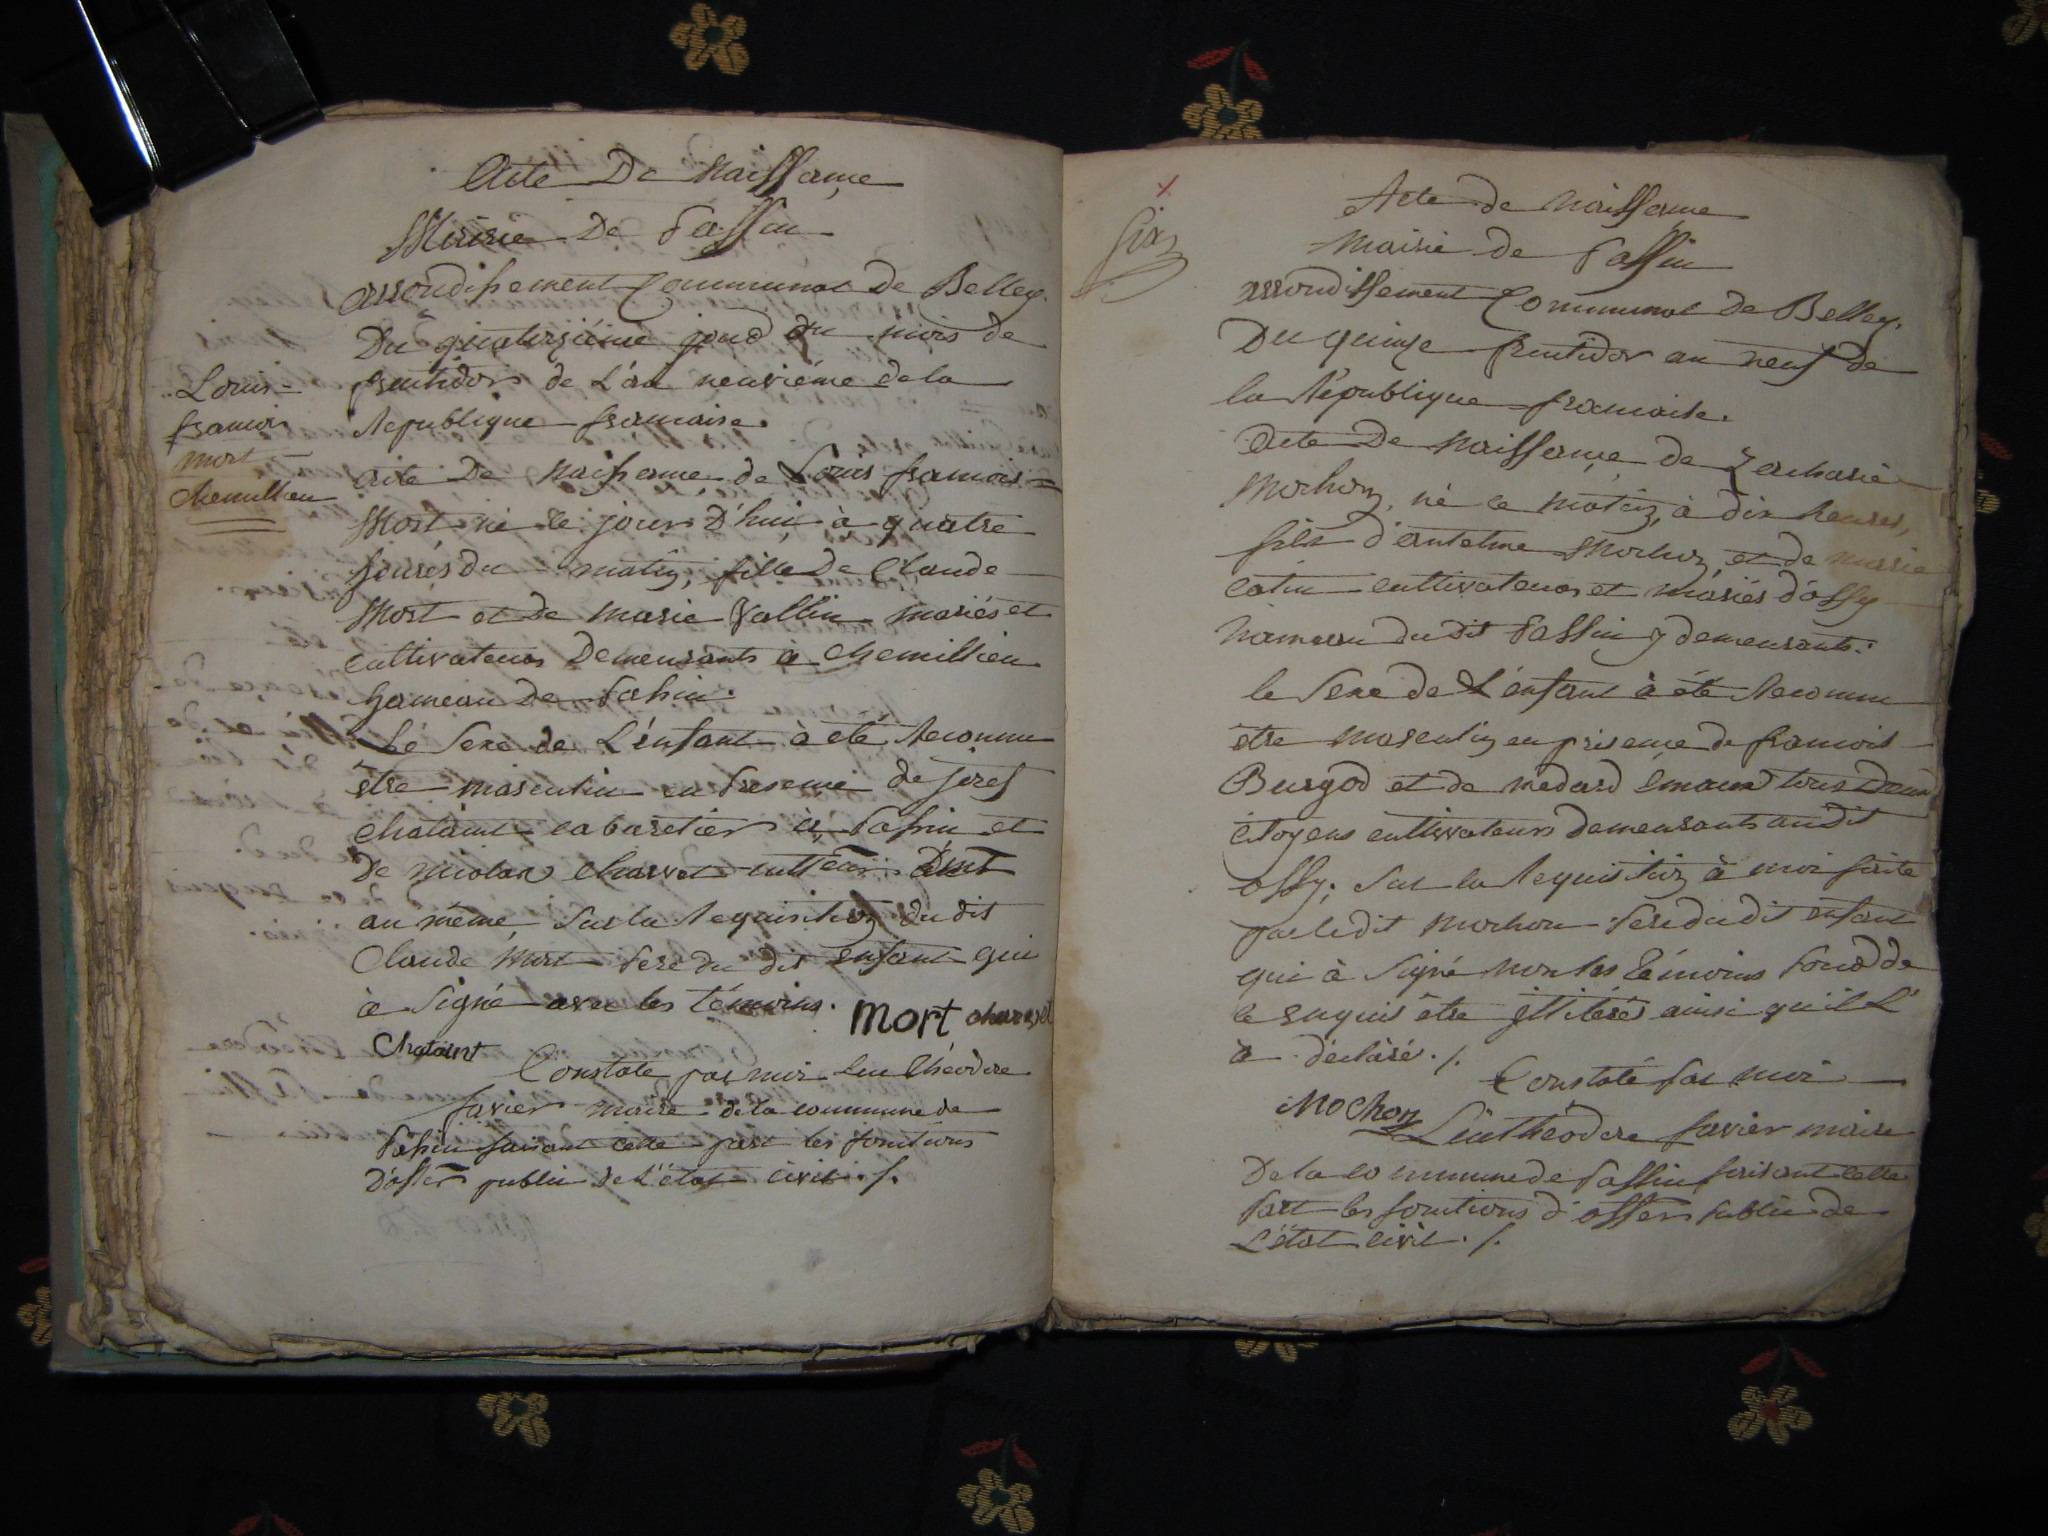 Acte De Naissance
Mairie De Passin
arrondissement Communal de Belley.
Du quatorzième jour du mois de
fructidor de L'an neuvième de la
Republique francaise.
Louis
francois
mort
Chemillieu
acte De naissance de Louis francois
Mort, né le jour D'hui à quatre
heures du matin, fille De Claude
Mort et de Marie Vallin mariés et
cultivateurs Demeurants a Chemillieu
hameau De Passin.
Le Sexe de L'enfant à été Reconnu
être masculin en Presence de josef
Chataint cabaretier à Passin et
De nicolas Charvet
au même, Sur la Requisition du dit
Claude Mort Pere du dit enfant qui
à Signé avec les témoins. Mort Charvet
Chataint
Constaté par moi Leu Théodore
favier maire de la commune de
Passin faisant cette part les fonctions
D'offer public de L'état civil ./.
Six
Acte de Naissance
Mairie de Passin
arrondissement Communal De Belley.
Du quinze fructidor an neuf de
la République francaise.
Acte De Naissance de Zacharie
Mochon, né ce matin, à dix heures,
fils d'antelme Mochon, et de marie
Catin cultivateurs et mariés d'ossy
hameau du dit Passin y demeurants.
le Sexe de L'enfant à été Reconnu
être masculin en présence de francois
Burgod et de medard tous Deux
Citoyens cultivateurs demeurants au dit
ossy; Sur la Requisition à moi faite
par le dit Mochon Pere du dit enfant
qui à Signé non les témoins Pour de
ce enquis être illiterés ainsi qu'il L'
a déclaré ./.
Constaté Par moi
Mochon
Leu théodore favier maire
De la commune de Passin faisant cette
Part les fonctions d'offer Public de
L'état civil ./.